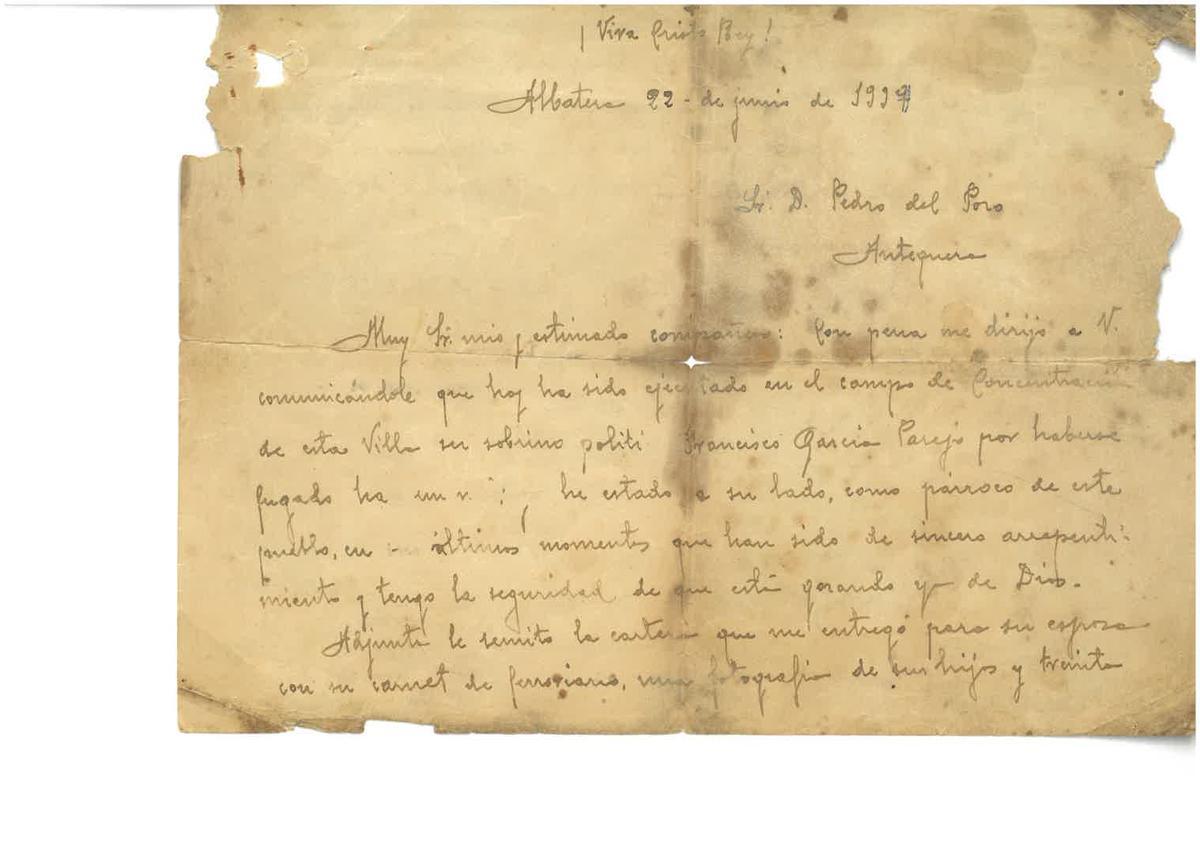 ¡Viva Cristo Rey!
Albatera 22 - de junio de 1939
Sr. D. Pedro del Pozo
Antequera
Muy Sr. mio y estimado compañero: Con pena me dirijo a V.
comunicándole que hoy ha sido ejecutado en el campo de Concentración
de esta Villa su sobrino politi Francisco Garcia Parejo por haberse
fugado ha un ; he estado a su lado, como párroco de este
pueblo, en últimos momentos que han sido de sincero arrepenti-
miento y tengo la seguridad de que está gozando ya de Dios.
Adjunta le remito la cartera que me entregó para su esposa
con su carnet de ferroviario, una fotografia de sus hijos y treinta